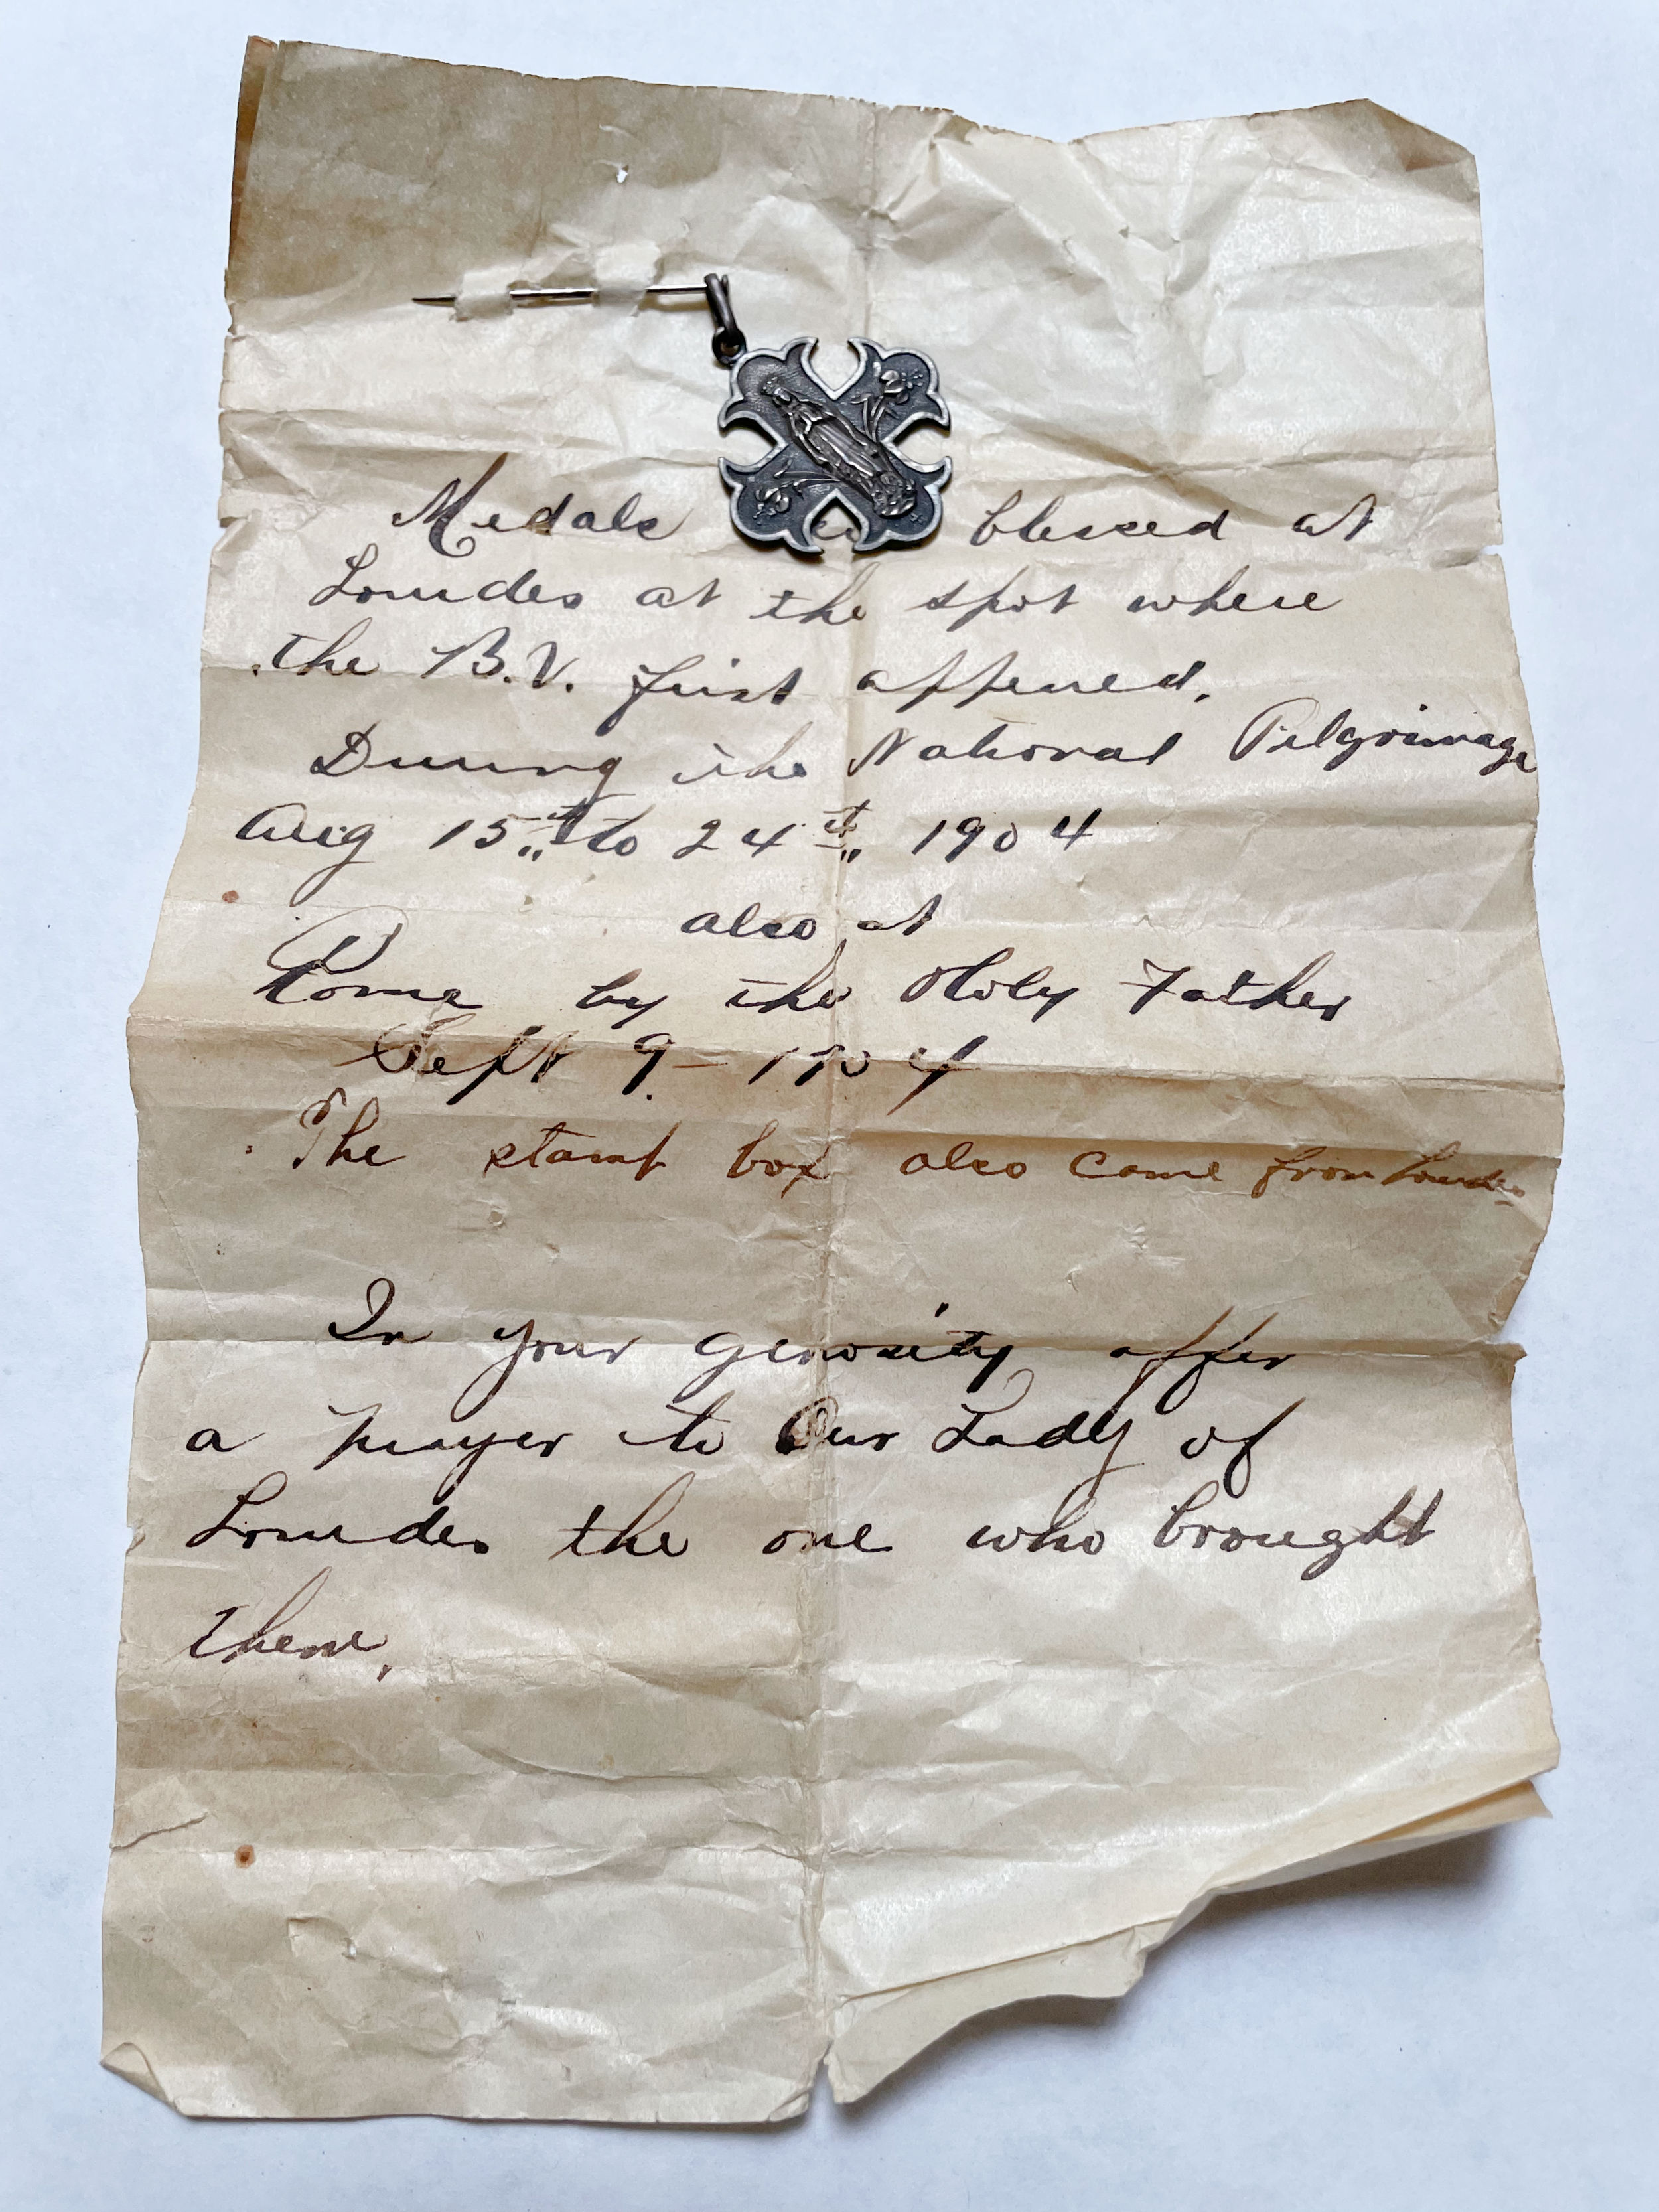 Medals blessed at
Lourdes at the spot where
the B.V. first appered.
During the National Pilgrimage
Aug 15th to 24th, 1904
also at
Rome by the Holy Father
Sept 9 - 1904
The stamp box also came from Lourdes
In your generosity offer
a prayer to Our Lady of
Lourdes the one who brought
them.